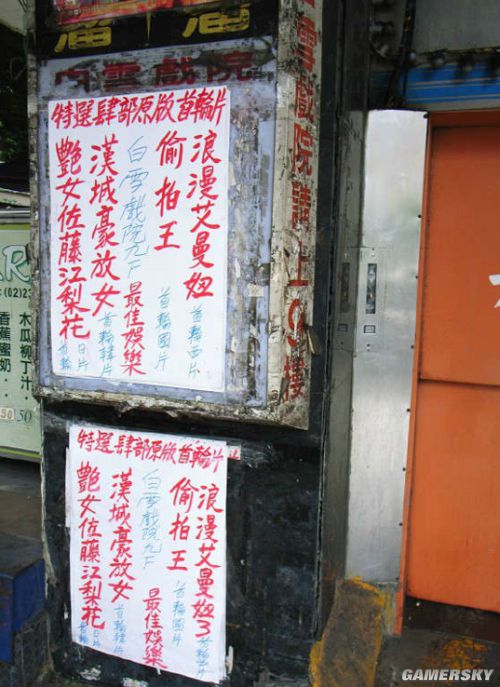 雪戲院
雪戲院請上9樓
特選肆部原版首輪片
浪漫艾曼妞 首輪西片
偷拍王 首輪國片
白雪戲院九F 最佳娛樂
漢城豪放女 首輪韓片
艷女佐藤江梨花 首輪日片
特選肆部原版首輪片
浪漫艾曼妞3 首輪西片
偷拍王 首輪國片
白雪戲院九F 最佳娛樂
漢城豪放女 首輪韓片
艷女佐藤江梨花 首輪日片
(02)23
木瓜柳丁汁
香蕉蜜奶
50
50
GAMERSKY